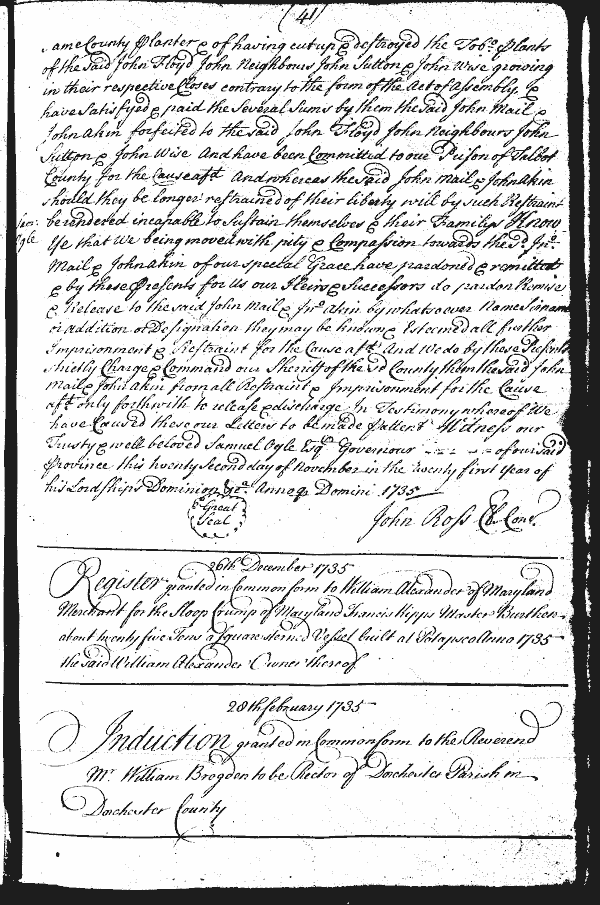 (41)
ame County Planter & of having cut up & destroyed the Tobo. Plants
of the said John Floyd John Neighbours John Sutton & John Wise growing
in their respective Closes contrary to the form of the Act of Assembly &
have Satisfyed & paid the Several Sums by them the said John Mail &
John Akin forfeited to the said John Floyd John Neighbours John
Sutton & John Wise And have been Committed to our Prison of Talbot
County for the Cause afd. And whereas the said John Mail & John Akin
should they be longer restrained of their liberty will by such Restraint
Sam:
Ogle
be rendered incapable to Sustain themselves & their Familys Know
Ye that We being moved with pity & Compassion towards the sd. Jno.
Mail & John Akin of our special Grace have pardoned & remitted
& by these Presents for Us our Heirs & Successors do pardon Remise
& Release to the said John Mail & Jno. Akin by whatsoever Name Sirname
or addition or Designation they may be known & Esteemed all further
Imprisonment & Restraint for the Cause afd. And We do by these Presents
strictly Charge & Command our Sherriff of the sd County them the said John
Mail & John Akin from all Restraint & Imprisonment for the Cause
afd. only forthwith to release & discharge In Testimony whereof We
have Caused these our Letters to be made patient Witness our
Trusty & well beloved Samuel Ogle Esqr. Governour of our said
Province this twenty second day of November in the twenty first Year of
his Lordships Dominion &ca. Annoq Domini 1735
Great
Seal
John Ross Cl. Con.
26th December 1735
Register granted in Common form to William Alexander of Maryland
Merchant for the Sloop Crump of Maryland Francis Kipps Master Burthen
about twenty five Tons a Square sterned Vessel built at Patapsco Anno 1735
the said William Alexander Owner thereof
28th February 1735
Induction granted in Common form to the Reverend
Mr. William Brogden to be Rector of Dorchester Parish in
Dorchester County